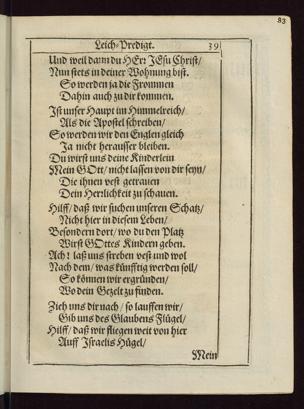 83
Leich-Predigt. 39
Und weil dann du HErr JEsu Christ/
Nun stets in deiner Wohnung bist.
So werden ja die Frommen
Dahin auch zu dir kommen.
Ist unser Haupt im Himmelreich/
Als die Apostel schreiben/
So werden wir den Englen gleich
Ja nicht herausser bleiben.
Du wirst uns deine Kinderlein
Mein GOtt/ nicht lassen von dir seyn/
Die ihnen vest getrauen
Dein Herrlichkeit zu schauen.
Hilff/ daß wir suchen unseren Schatz/
Nicht hier in diesem Leben/
Besondern dort/ wo du den Platz
Wirst GOttes Kindern geben.
Ach! laß uns streben vest und wol
Nach dem/ was künfftig werden soll/
So können wir ergründen/
Wo dein Gezelt zu finden.
Zieh uns dir nach/ so lauffen wir/
Gib uns des Glaubens Flügel/
Hilff/ daß wir fliegen weit von hier
Auff Israelis Hügel/
Mein